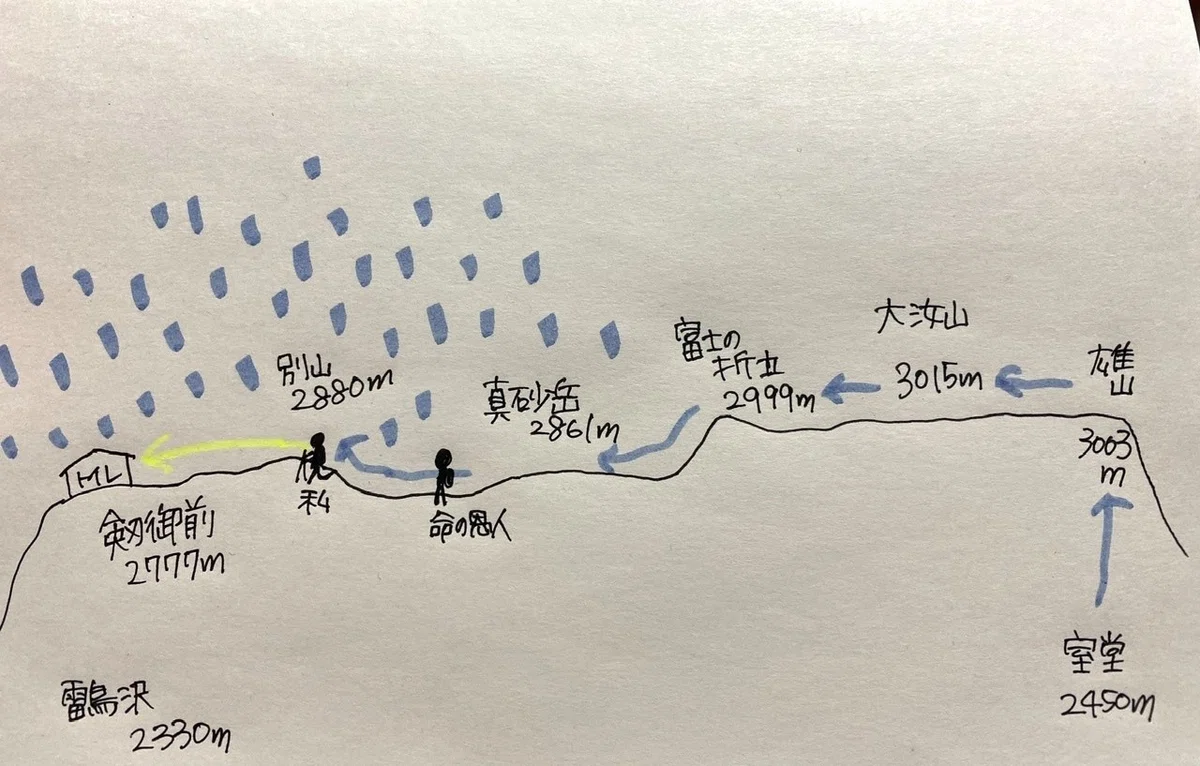 大汝山
3015m
富士の
折立
2999m
雄
山
3003
m
別山
2880m
真砂岳
2861m
私
命の恩人
剱御前
2777m
室堂
2450m
雷鳥沢
2330m